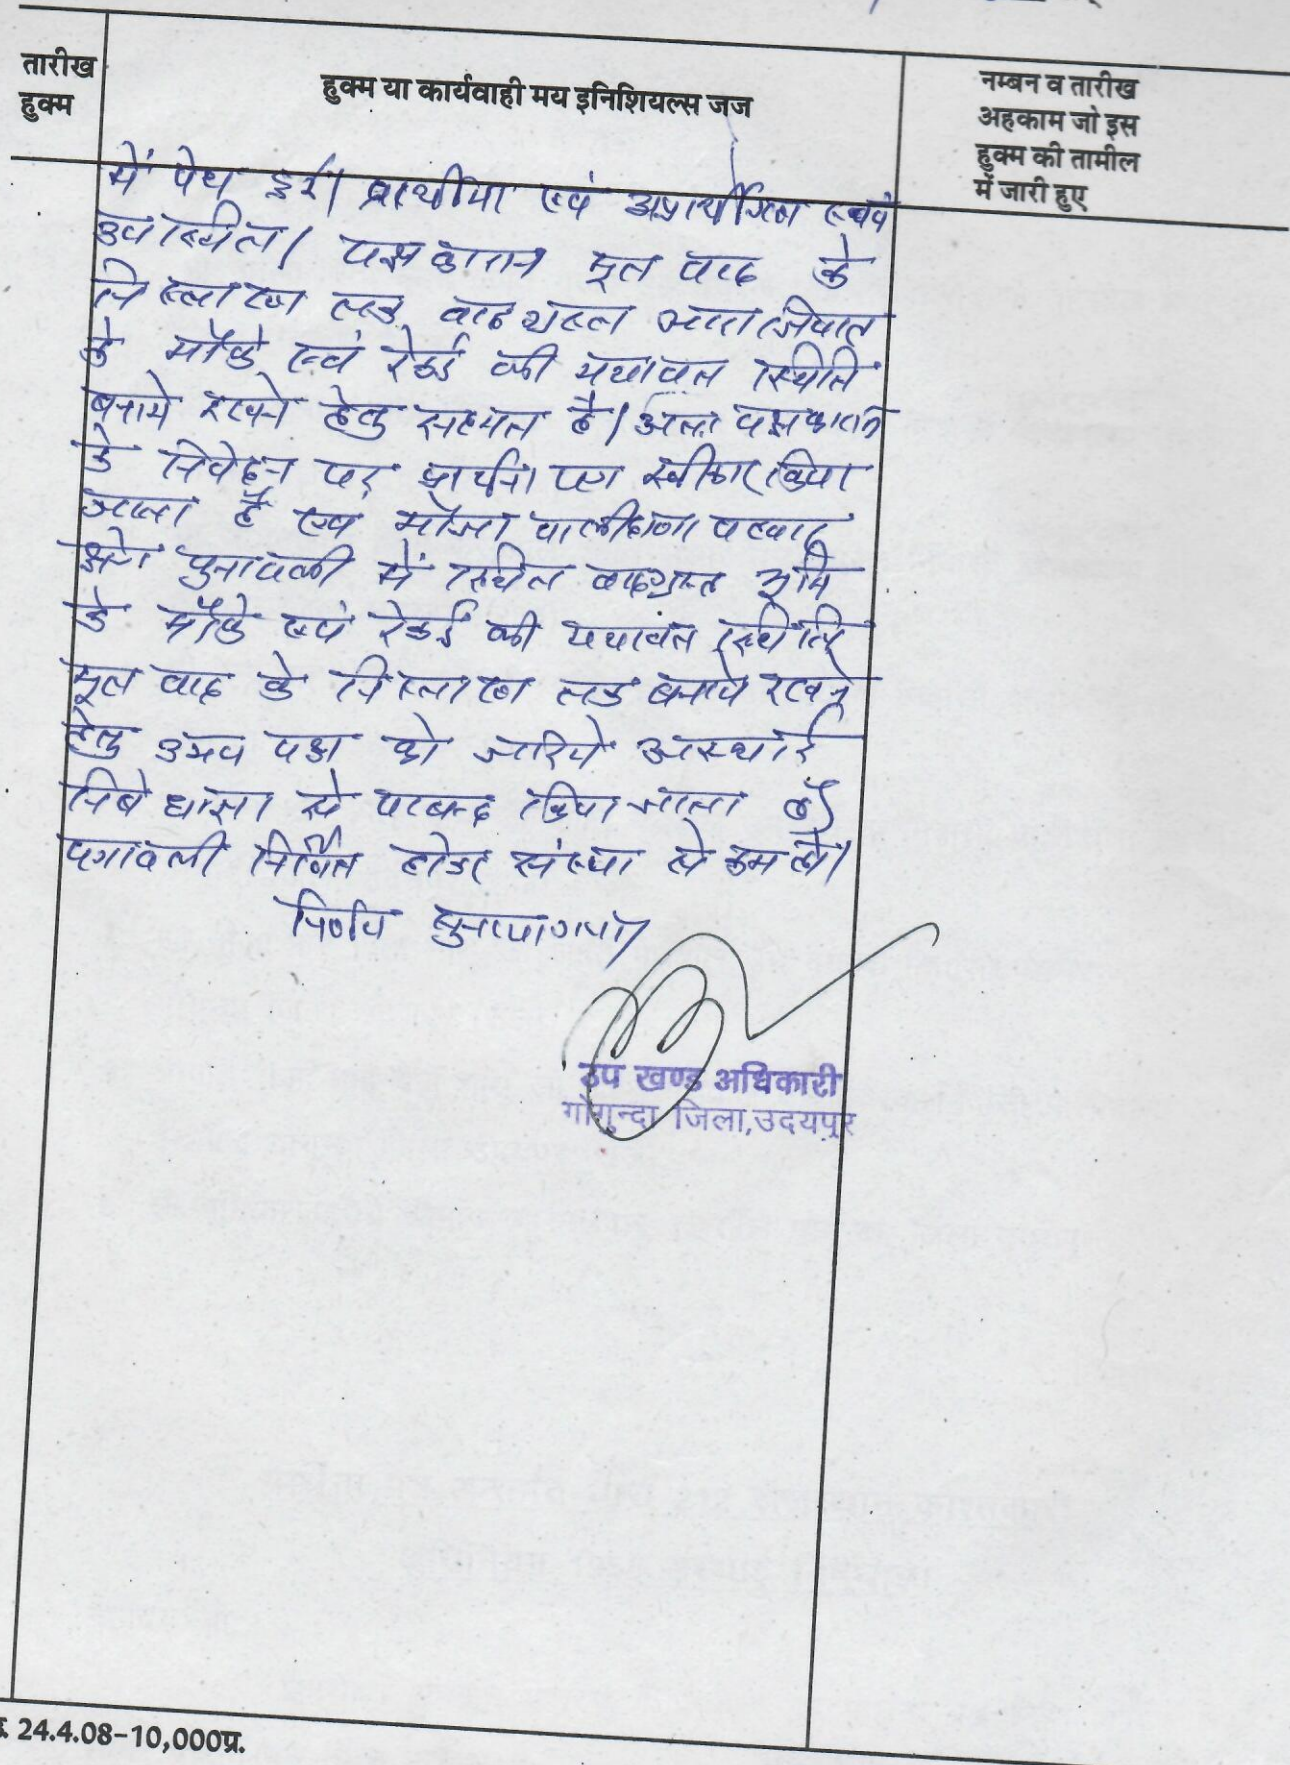 तारीख
हुक्म
हुक्म या कार्यवाही मय इनिशियल्स जज
नम्बन व तारीख
अहकाम जो इस
हुक्म की तामील
में जारी हुए
में पेश हुई। प्रार्थीया एवं अप्रार्थीगण स्वयं
उपस्थित। पक्षकारान मूल वाद के
निस्तारण तक वादग्रस्त आराजियात
के मौके एवं रेकर्ड की यथावत स्थिति
बनाये रखने हेतु सहमत है। अतः पक्षकारान
के निवेदन पर प्रार्थना पत्र स्वीकार किया
जाता है एवं मौजा पटवार
क्षेत्र पुनावली में स्थित वादग्रस्त भूमि
के मौके एवं रेकर्ड की यथावत स्थिति
मूल वाद के निस्तारण तक बनाये रखने
हेतु उभय पक्ष को जरिये अस्थाई
निषेधाज्ञा से पाबन्द किया जाता है।
पत्रावली निर्णित होकर संख्या से कम हो।
निर्णय सुनाया गया।
उप खण्ड अधिकारी
गोगुन्दा जिला,उदयपुर
24.4.08-10,000प्र.